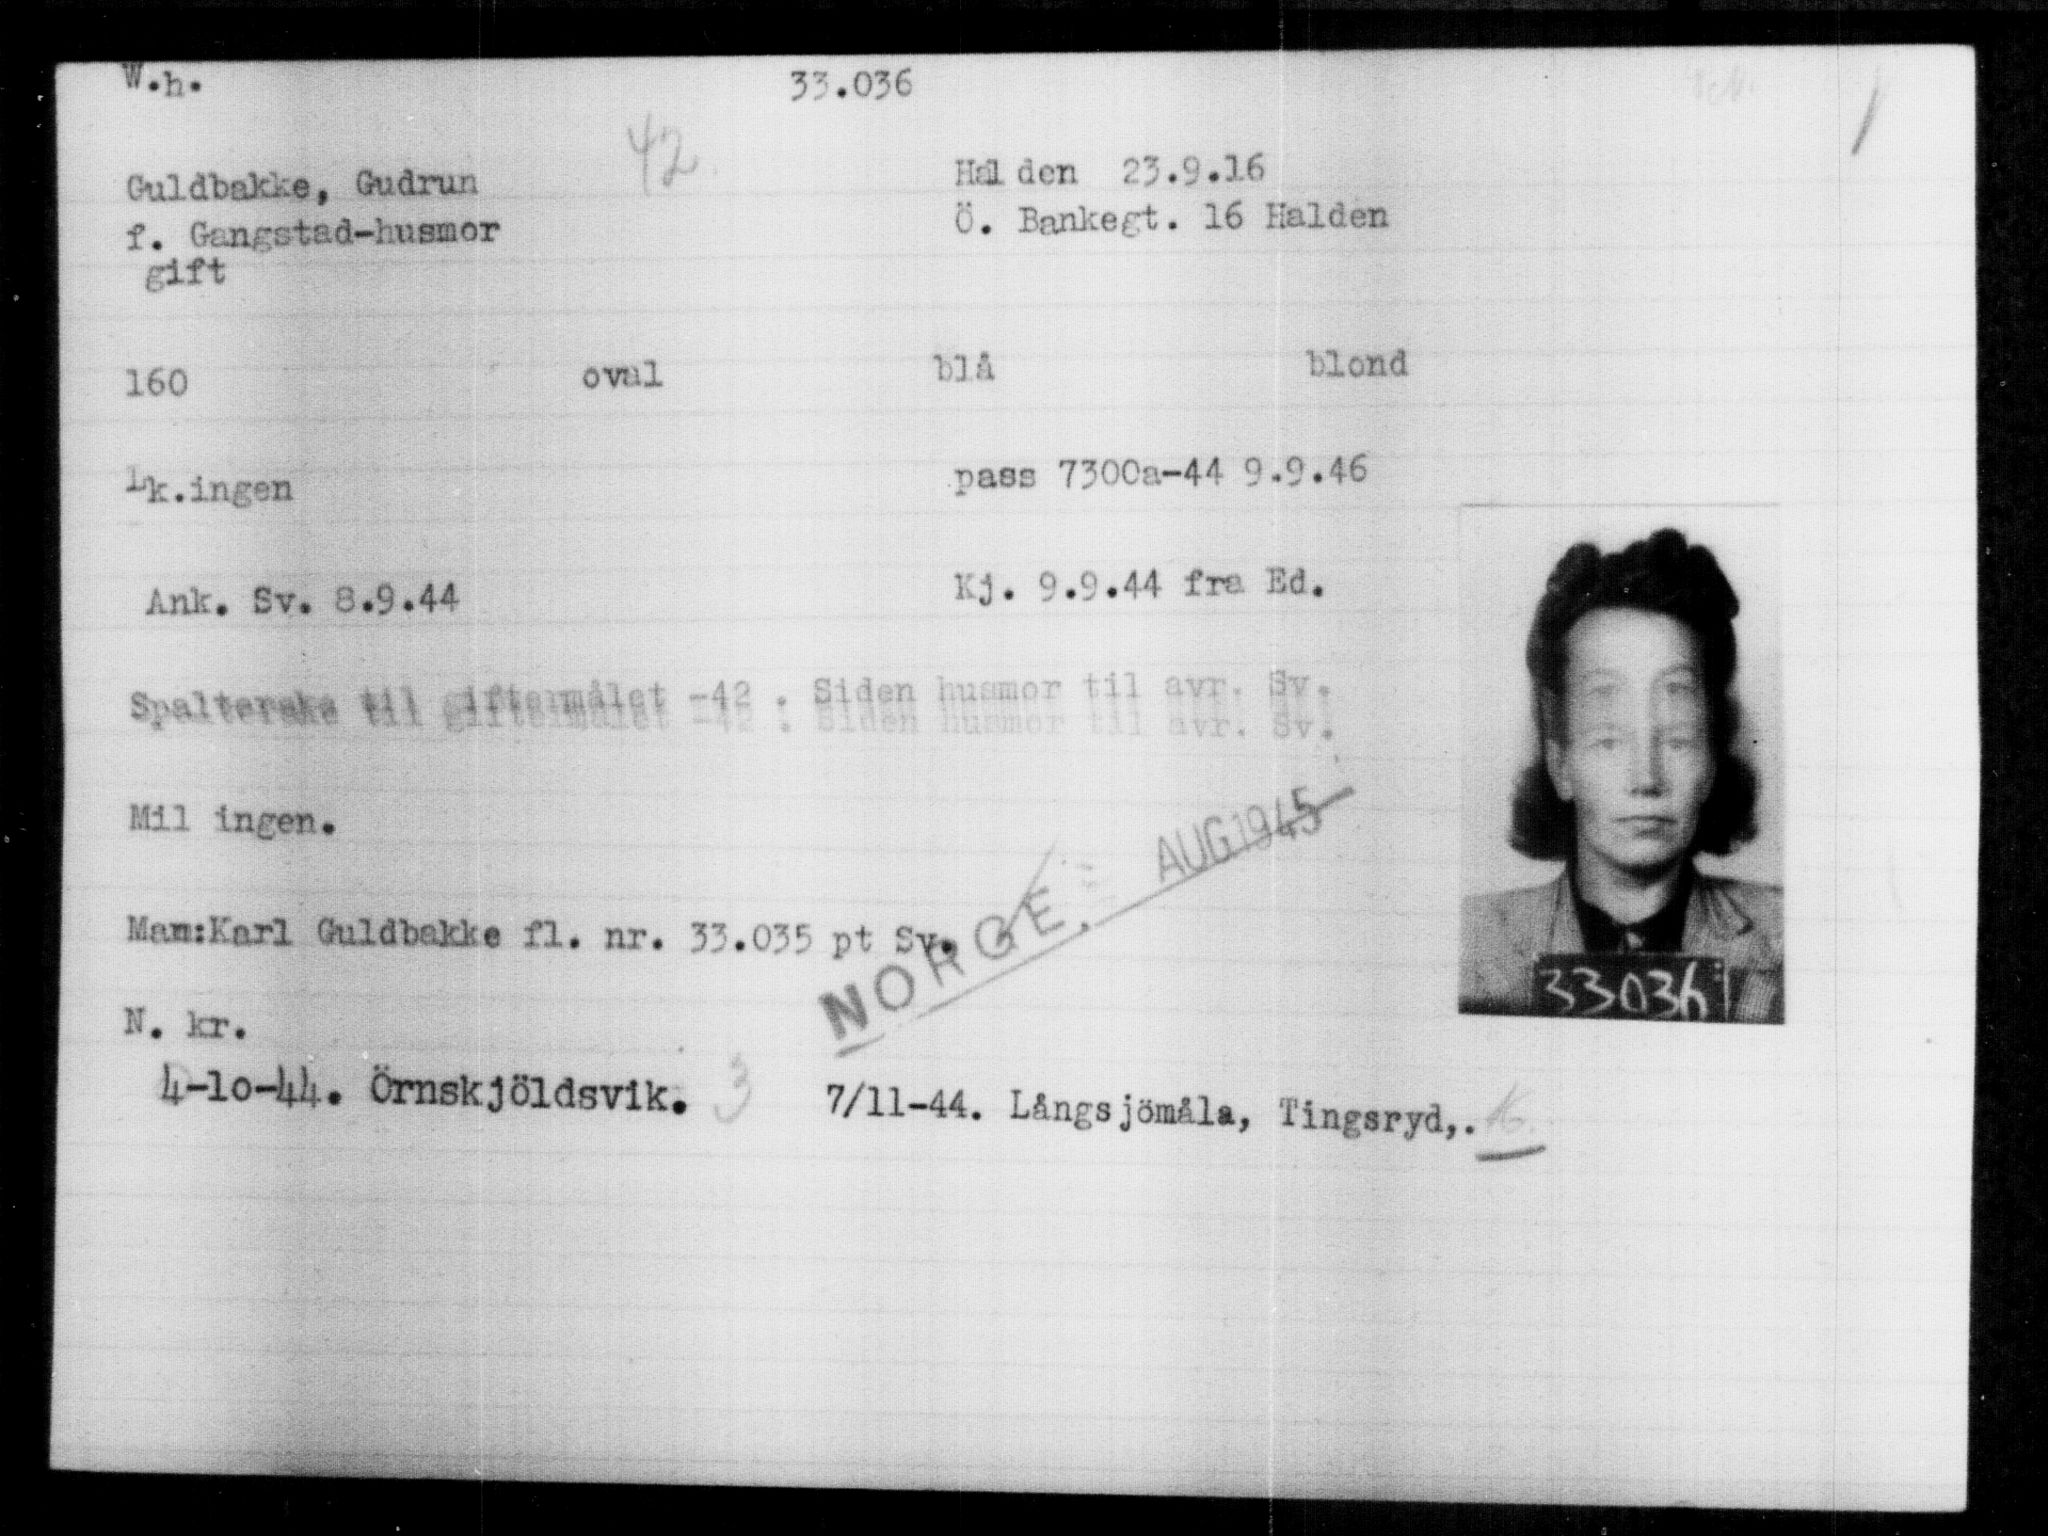 W.h. 33.036
42.
Guldbakke, Gudrun Halden 23.9.16
f. Gangstad-husmor Ö. Bankegt. 16 Halden
gift
160 oval blå blond
Lk.ingen pass 7300a-44 9.9.46
Ank. Sv. 8.9.44 Kj. 9.9.44 fra Ed.
Spalterske til giftermålet -42 . Siden husmor til avr. Sv.
Mil ingen.
NORGE. AUG 1945
Man:Karl Guldbakke fl. nr. 33.035 pt Sv.
33036
N. kr.
4-10-44. Örnskjöldsvik. 3 7/11-44. Långsjömåla, Tingsryd,.